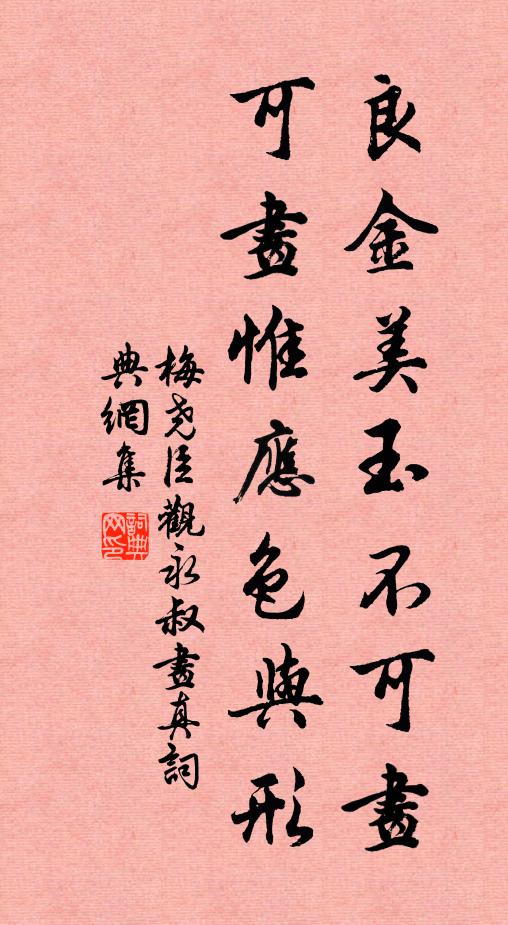 良金美玉不可畫
可畫惟應色與形
梅堯臣觀永叔畫真詞
典網集
詞典網印